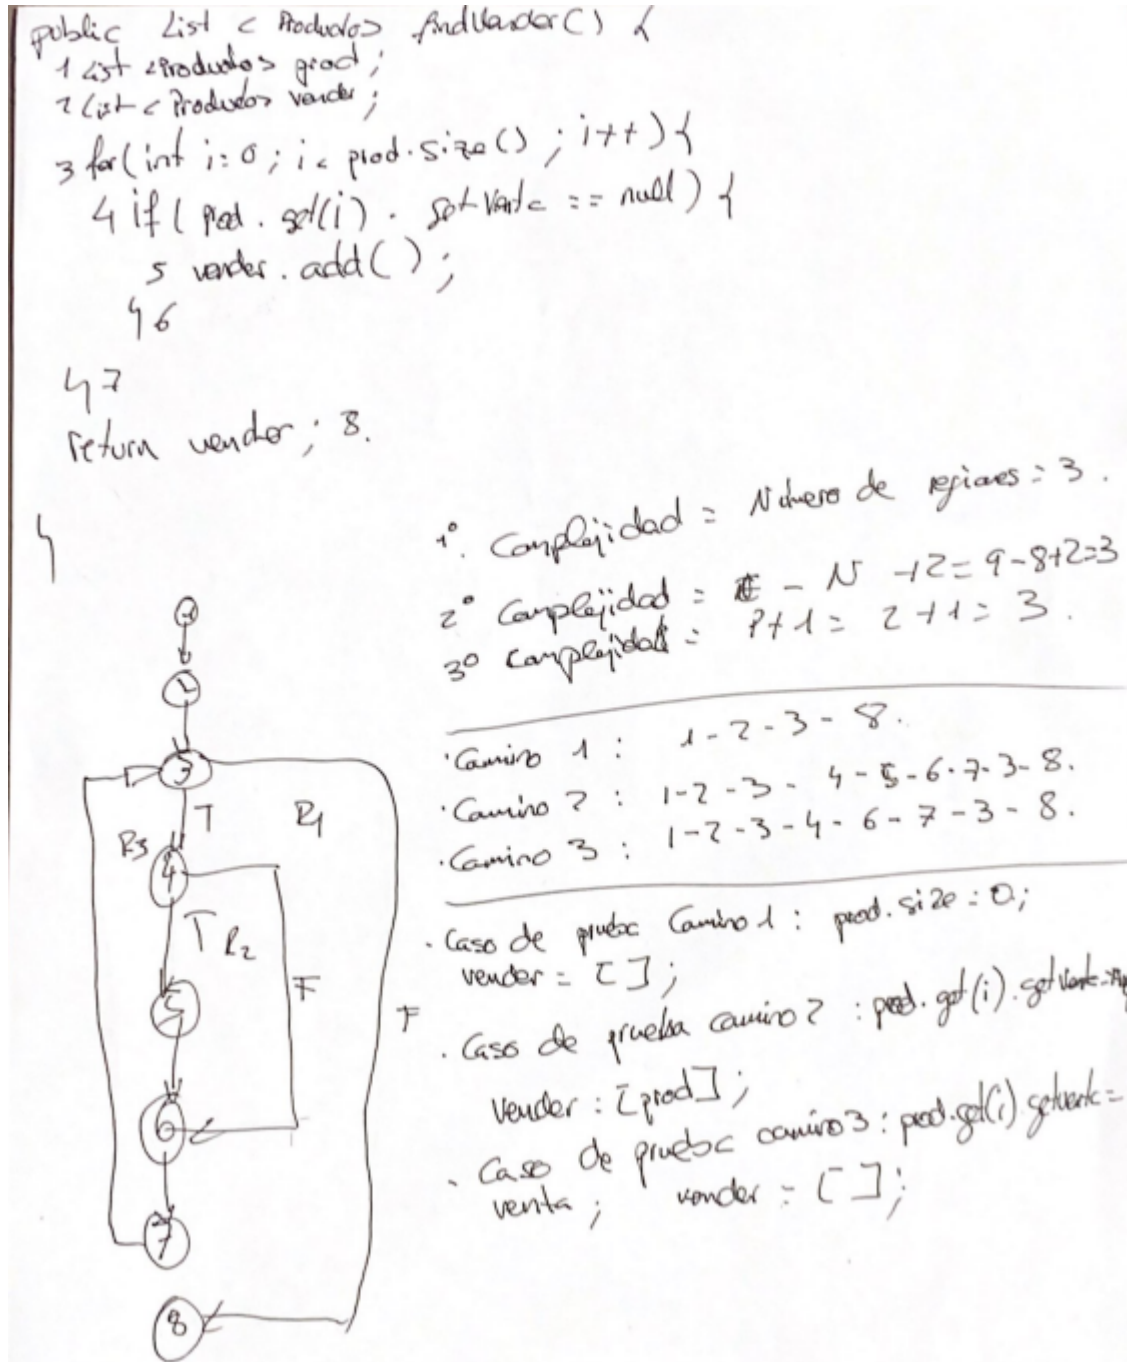 public List < Productos> findVender() {
1 List <Productos> prod;
2 List < Productos vender;
3 for(int i=0; i< prod.size(); i++){
4 if( prod.get(i). getVenta == null) {
5 vender.add();
} 6
} 7
return vender; 8.
}
1º. Complejidad = Número de regiones = 3.
2º Complejidad = E - N + 2 = 9-8+2=3
3º Complejidad = P+1 = 2+1 = 3.
1
2
3
T
R1
R3
4
T
R2
F
F
5
6
7
8
· Camino 1 : 1-2-3-8.
· Camino 2 : 1-2-3-4-5-6-7-3-8.
· Camino 3 : 1-2-3-4-6-7-3-8.
· Caso de prueba Camino 1 : prod.size = 0;
vender = [];
· Caso de prueba camino 2 : prod.get(i).getVenta =
vender = [prod];
· Caso de prueba camino 3 : prod.get(i).getventa =
venta; vender = [];